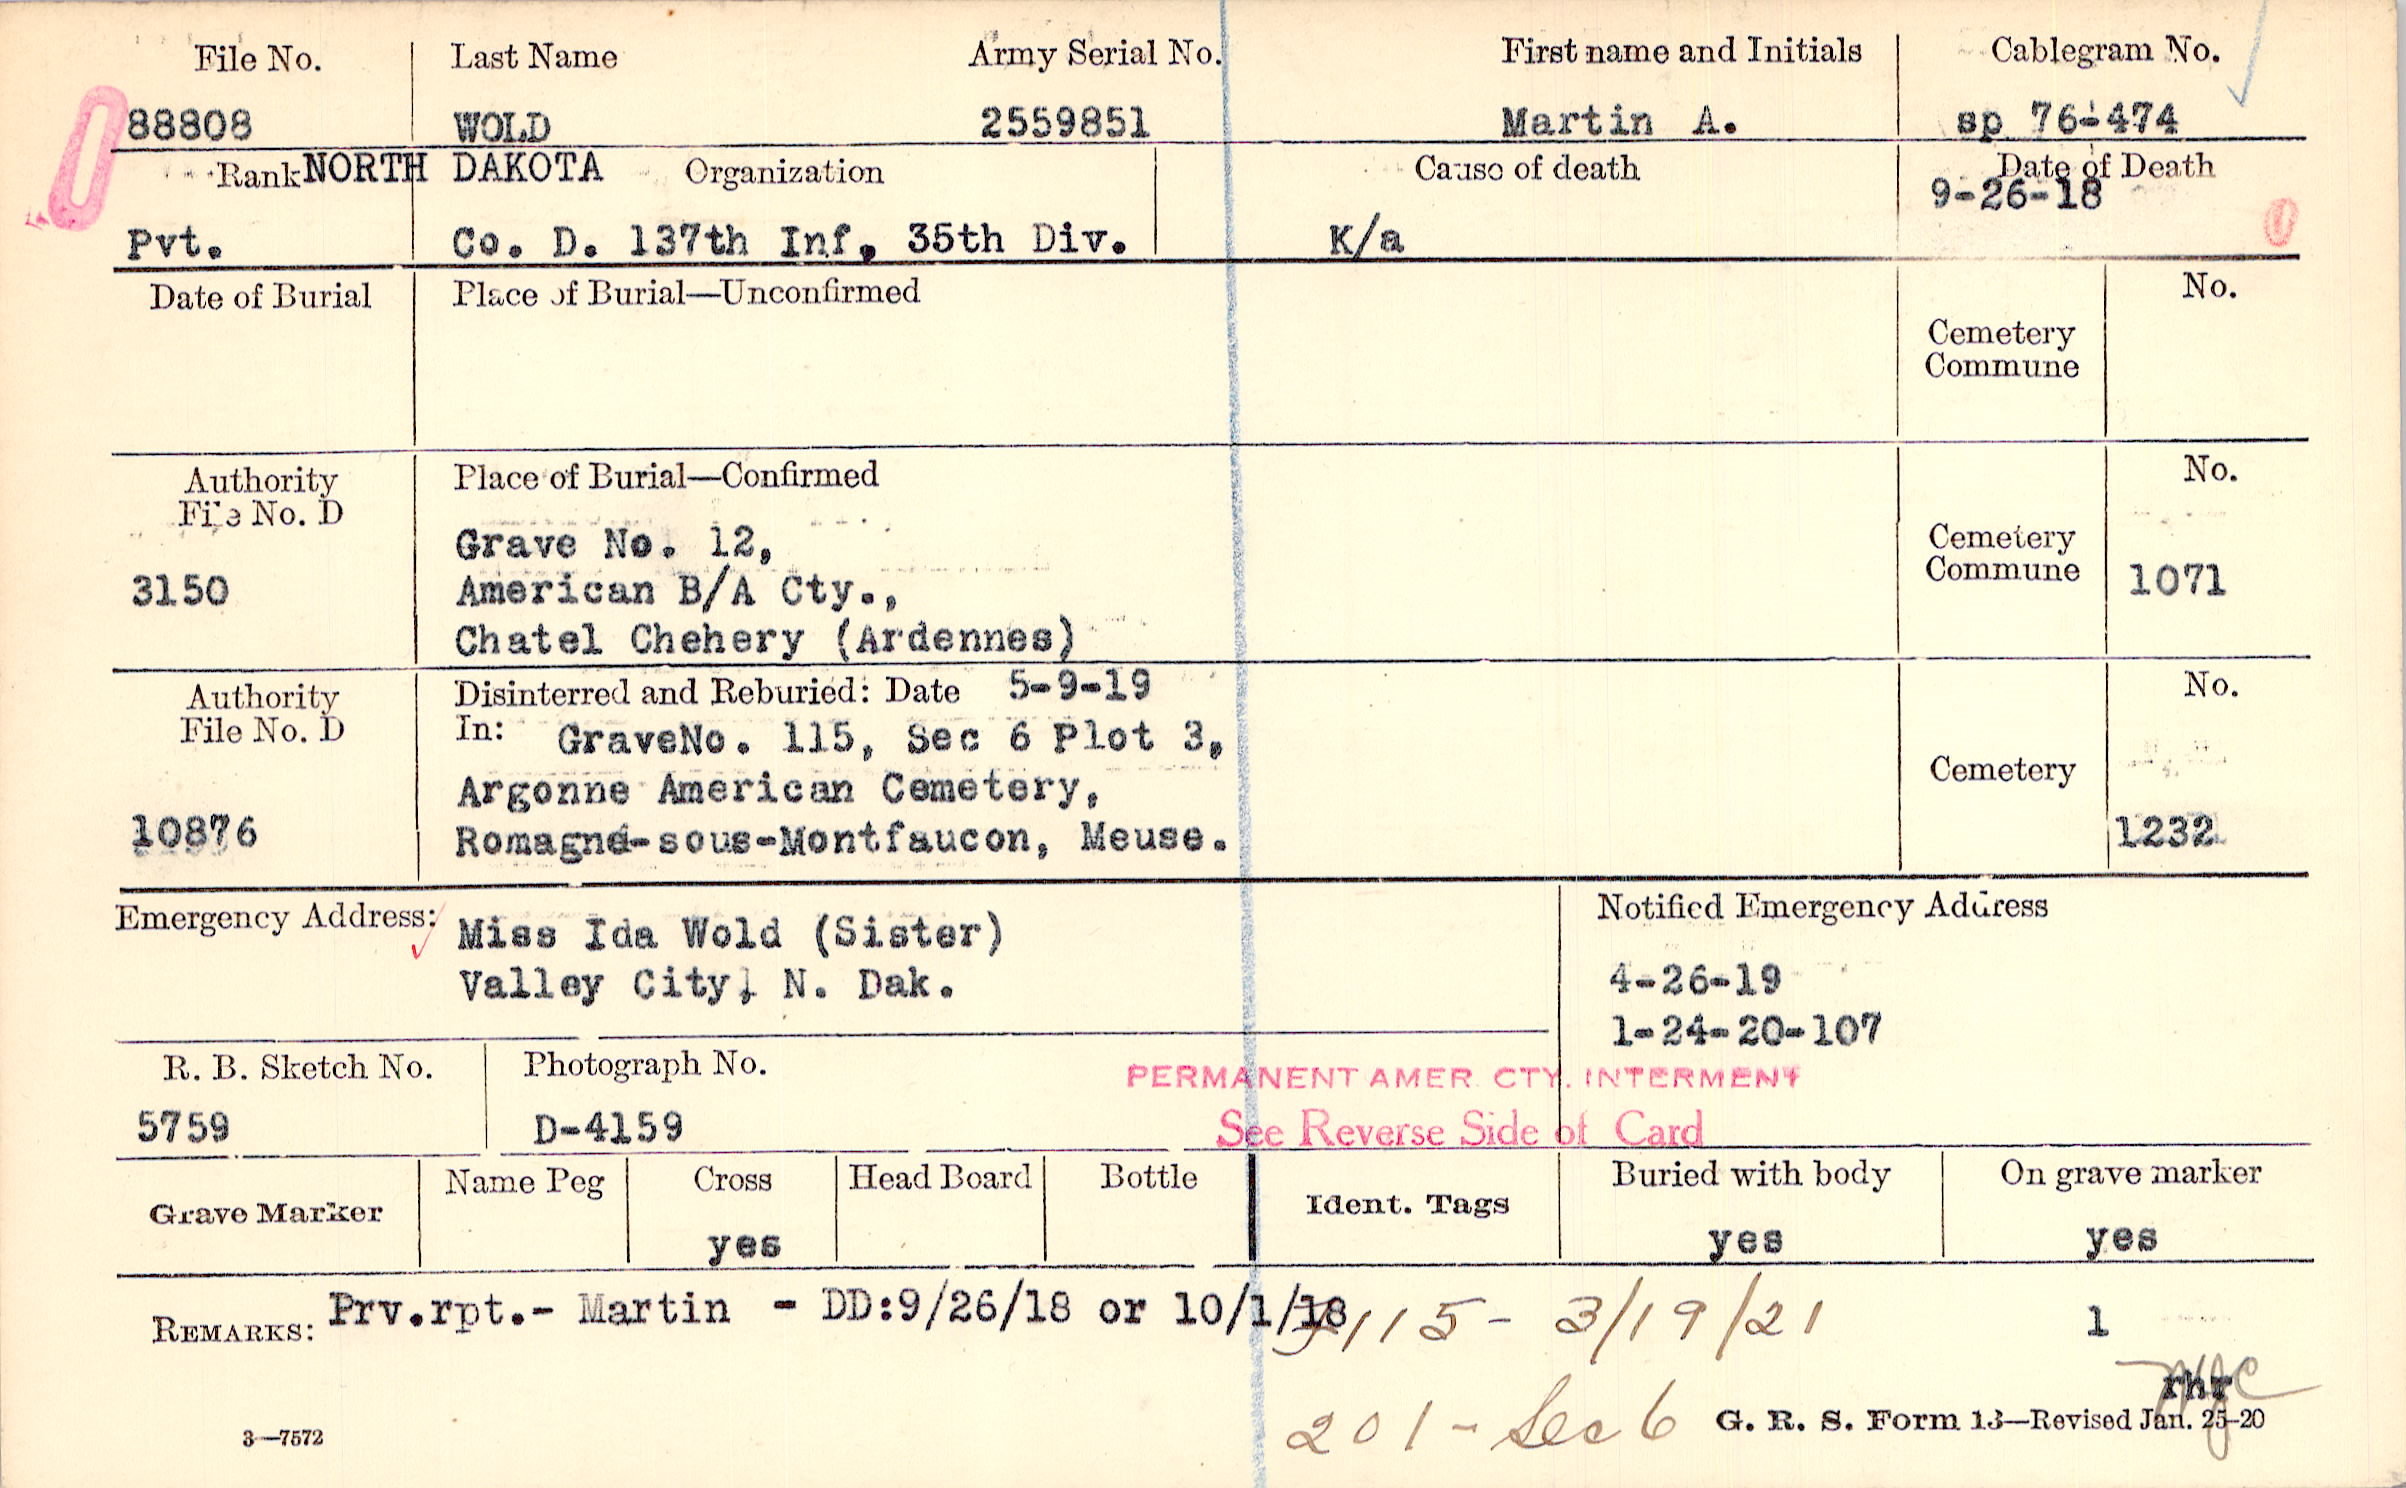 File No. Last Name Army Serial No. First name and Initials Cablegram No.
88808 WOLD 2559851 Martin A. sp 76-474
Rank NORTH DAKOTA Organization Cause of death Date of Death
9-26-18
Pvt. Co. D. 137th Inf. 35th Div. K/a
Date of Burial Place of Burial—Unconfirmed No.
Cemetery
Commune
Authority Place of Burial—Confirmed No.
File No. D
Grave No. 12,
Cemetery
3150 American B/A Cty., Commune 1071
Chatel Chehery (Ardennes)
Authority Disinterred and Reburied: Date 5-9-19 No.
File No. D In: GraveNo. 115, Sec 6 Plot 3,
Argonne American Cemetery, Cemetery
10876 Romagne-sous-Montfaucon, Meuse. 1232
Emergency Address: Miss Ida Wold (Sister) Notified Emergency Address
Valley City, N. Dak. 4-26-19
1-24-20-107
R. B. Sketch No. Photograph No. PERMANENT AMER. CTY. INTERMENT
5759 D-4159 See Reverse Side of Card
Grave Marker Name Peg Cross Head Board Bottle Ident. Tags Buried with body On grave marker
yes yes yes
REMARKS: Prv.rpt.- Martin - DD:9/26/18 or 10/1/18 115 - 3/19/21 1
rhr
201 - Sec 6 G. R. S. Form 13—Revised Jan. 25-20
3—7572